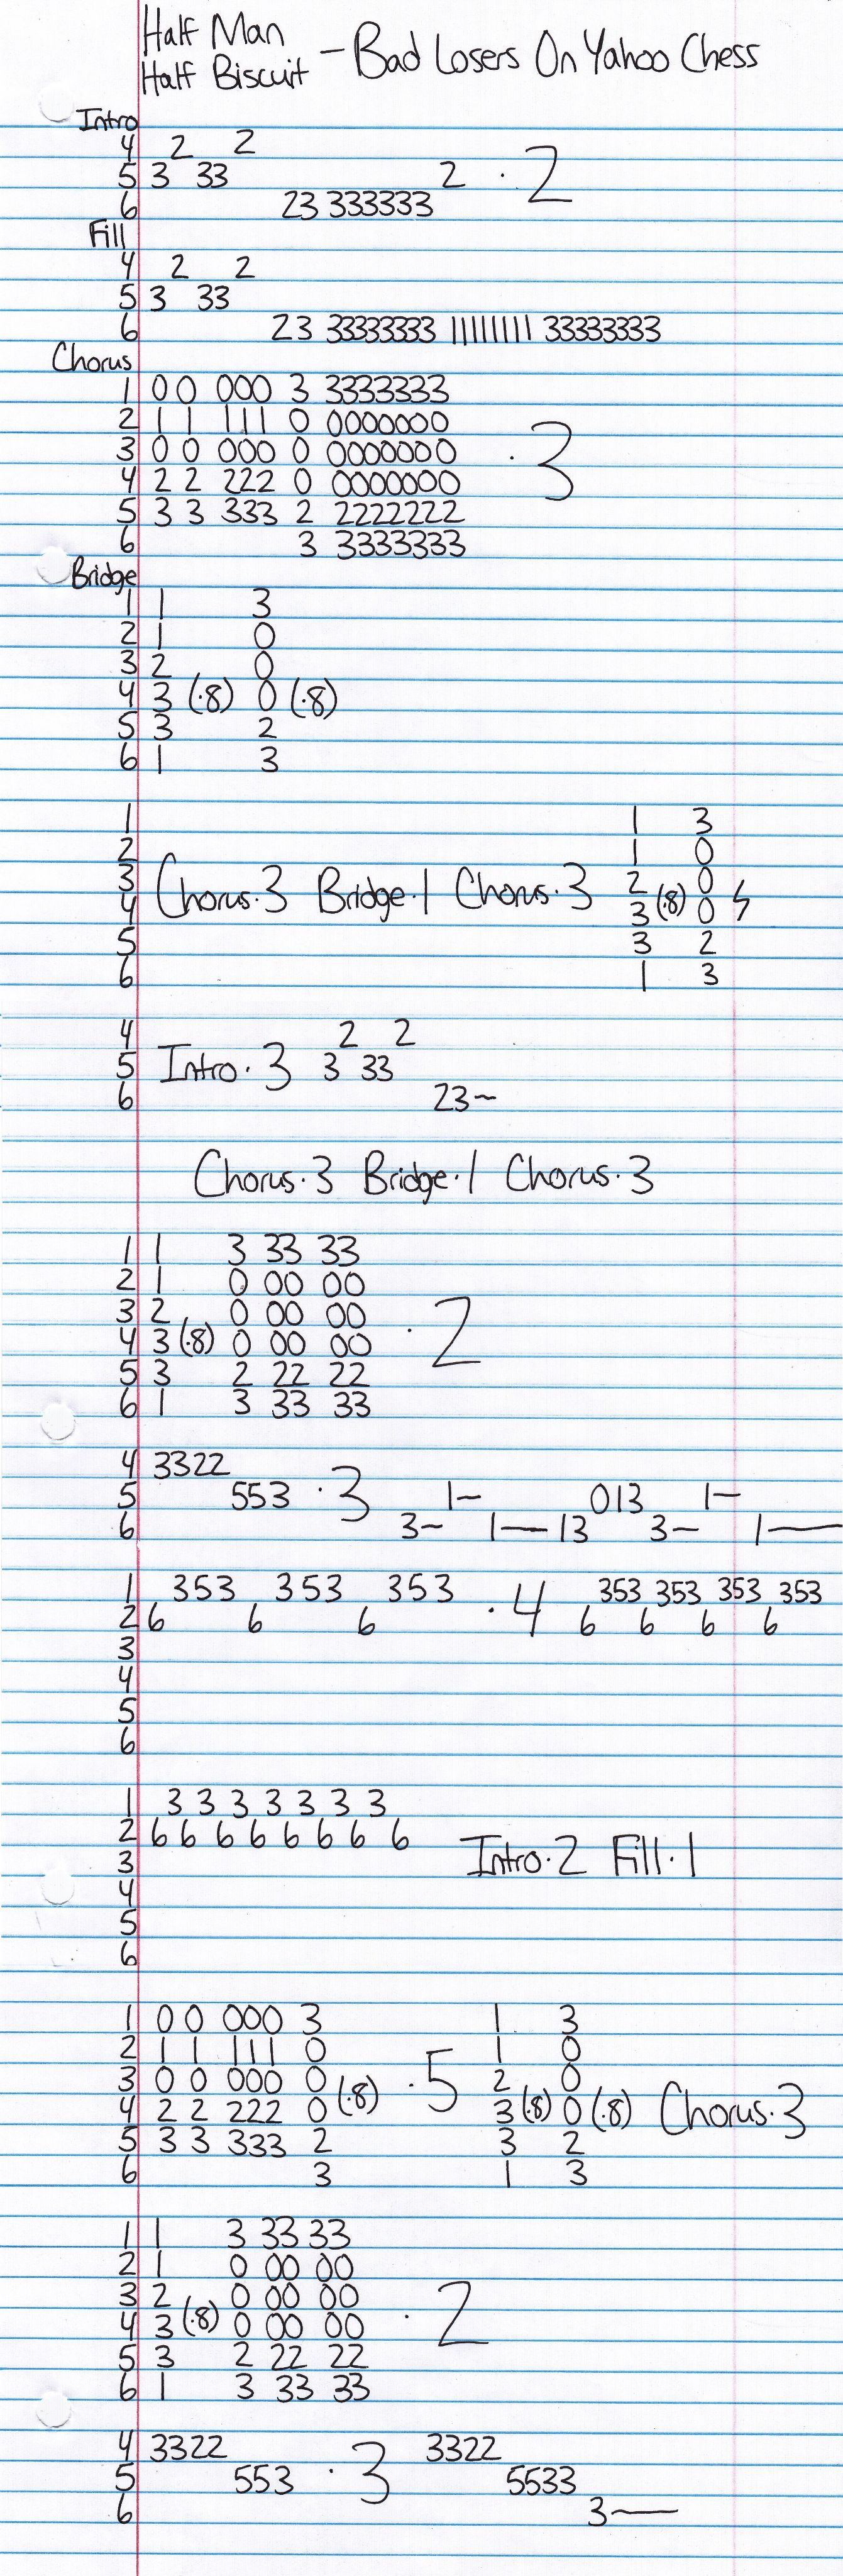 Half Man
Half Biscuit - Bad Losers On Yahoo Chess
Intro
4 2 2
5 3 33 2 · 2
6 23 333333
Fill
4 2 2
5 3 33
6 23 33333333 111111111 33333333
Chorus
1 0 0 000 3 3333333
2 1 1 111 0 0000000
3 0 0 000 0 0000000 · 3
4 2 2 222 0 0000000
5 3 3 333 2 2222222
6 3 3333333
Bridge
1 1 3
2 1 0
3 2 0
4 3 (·8) 0 (·8)
5 3 2
6 1 3
1 1 3
2 1 0
3 Chorus·3 Bridge·1 Chorus·3 2 0
4 3 (·8) 0 ϟ
5 3 2
6 1 3
4 2 2
5 Intro·3 3 33
6 23~
Chorus·3 Bridge·1 Chorus·3
1 1 3 33 33
2 1 0 00 00
3 2 0 00 00 · 2
4 3 (·8) 0 00 00
5 3 2 22 22
6 1 3 33 33
4 3322
5 553 · 3 1— 013 1—
6 3~ 1— 13 3— 1—
1 353 353 353 · 4 353 353 353 353
2 6 6 6 6 6 6 6
3
4
5
6
1 3 3 3 3 3 3 3
2 6 6 6 6 6 6 6 6
3 Intro·2 Fill·1
4
5
6
1 0 0 000 3 1 3
2 1 1 111 0 1 0
3 0 0 000 0 (·8) · 5 2 0
4 2 2 222 0 3 (·8) 0 (·8) Chorus·3
5 3 3 333 2 3 2
6 3 1 3
1 1 3 33 33
2 1 0 00 00
3 2 0 00 00 · 2
4 3 (·8) 0 00 00
5 3 2 22 22
6 1 3 33 33
4 3322 3322
5 553 · 3 5533
6 3—